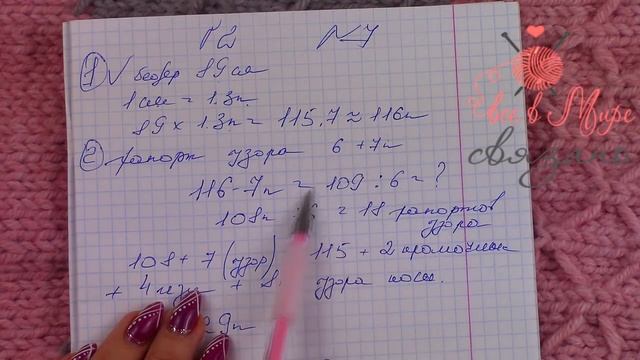 Р2 №7
① V бедер 89 см
1 см = 1.3п
89 × 1.3п = 115,7 ≈ 116п
② рапорт узора 6 + 7п
116 - 7п = 109 : 6 = ?
108п = 18 рапортов
узора
108 + 7 (узор) 115 + 2 кромочные
+ 4 + 8 узора косы.
29п
все в Мире
связано